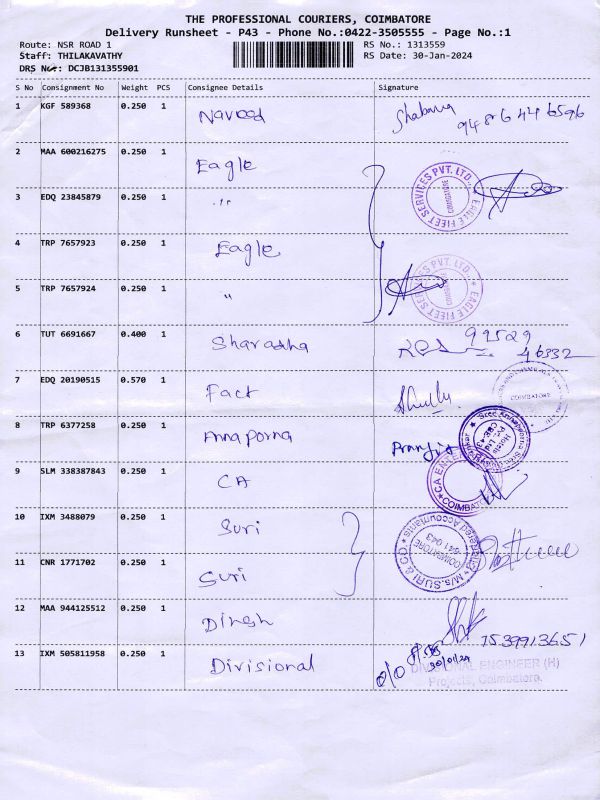 THE PROFESSIONAL COURIERS, COIMBATORE
Delivery Runsheet - P43 - Phone No.:0422-3505555 - Page No.:1
Route: NSR ROAD 1
RS No.: 1313559
Staff: THILAKAVATHY
RS Date: 30-Jan-2024
DRS No: DCJB131355901
S No Consignment No Weight PCS Consignee Details Signature
1 KGF 589368 0.250 1 Naveed
9486446596
2 MAA 600216275 0.250 1 Eagle
3 EDQ 23845879 0.250 1 "
EAGLE FLEET SERVICES PVT. LTD.
COIMBATORE
4 TRP 7657923 0.250 1 Eagle
5 TRP 7657924 0.250 1 "
EAGLE FLEET SERVICES PVT. LTD.
6 TUT 6691667 0.400 1 Sharadha 99529
46332
7 EDQ 20190515 0.570 1 Fact
COIMBATORE
8 TRP 6377258 0.250 1 Annaporna
9 SLM 338387843 0.250 1 CA
10 IXM 3488079 0.250 1 Suri
M/s. SURI & CO. Chartered Accountants
COIMBATORE
641 043
11 CNR 1771702 0.250 1 Suri
12 MAA 944125512 0.250 1 Dinesh
7539913651
13 IXM 505811958 0.250 1 Divisional
30/01/24
DIVISIONAL ENGINEER (H)
Projects, Coimbatore.